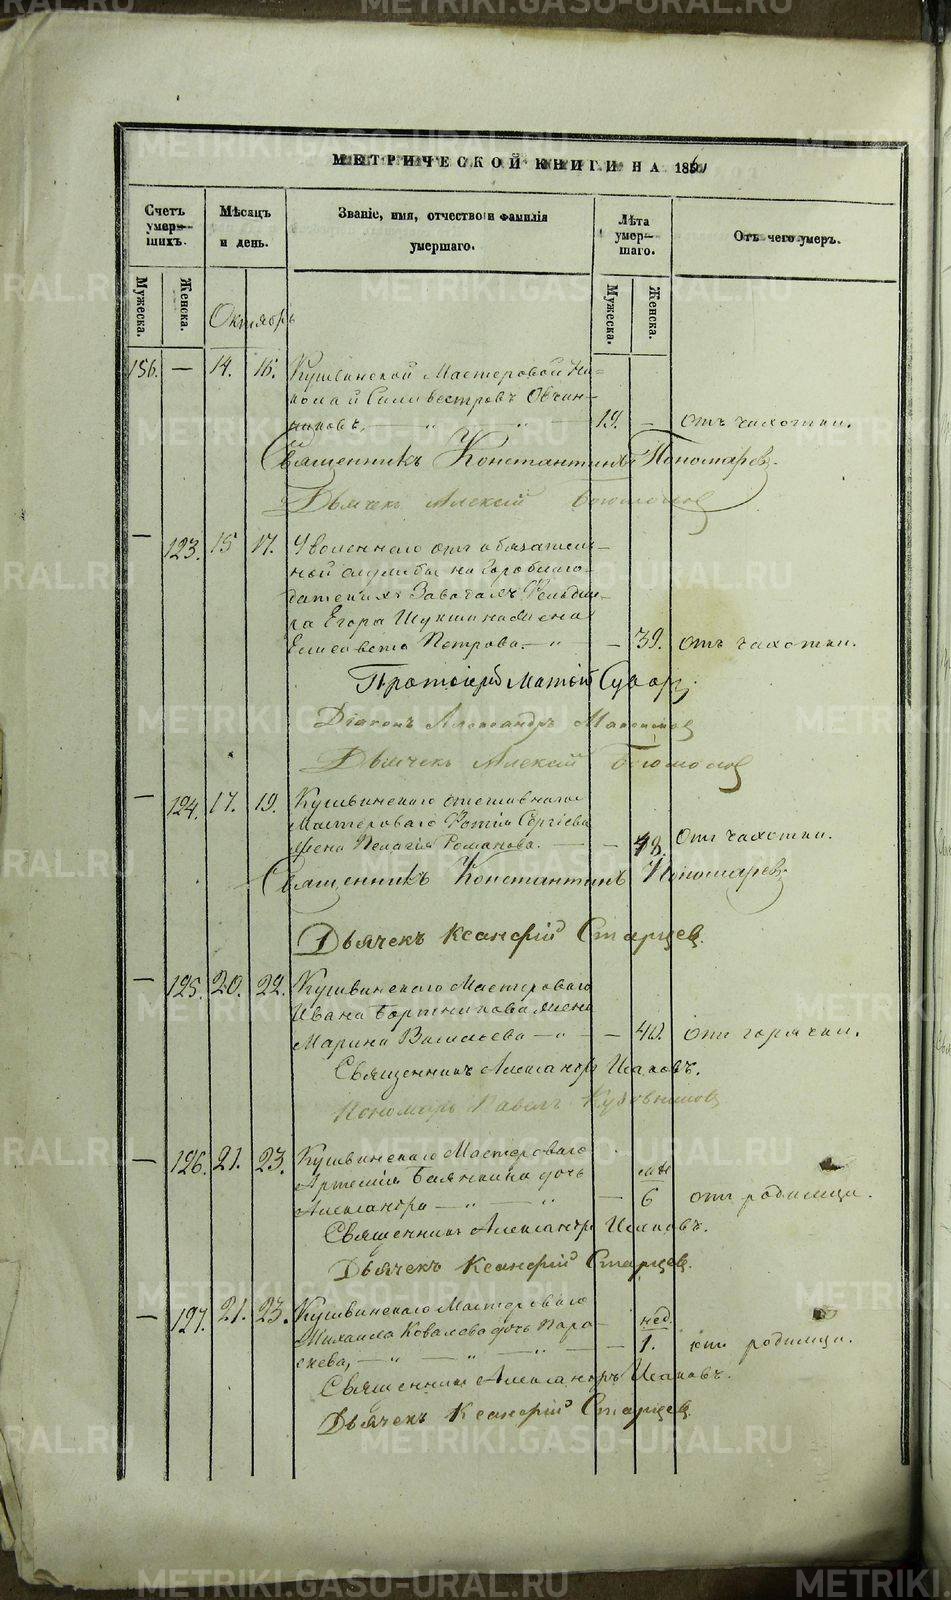 МЕТРИЧЕСКОЙ КНИГИ НА 1861
Счетъ умер— шихъ.
Мѣсяцъ и день.
Званіе, имя, отчество и фамилія умершаго.
Лѣта умер— шаго.
Отъ чего умеръ.
Мужеска.
Женска.
Октябрь
Мужеска.
Женска.
156. — 14. 16. Кушвинской Мастеровой Ни-
кола й Силивестровъ Овчин-
никовъ, — „ — „ — 19. — отъ чахотки.
Священникъ Константинъ Пономаревъ.
Дьячекъ Алексій Богомолов
— 123. 15 17. Уволеннаго отъ обязатель-
ной службы на Гороблаго-
датскихъ Заводахъ Фельдше-
ра Егора Шукшина жена
Елисавета Петрова. — „ — 39. отъ чахотки.
Протоіерей Матѳій
Діаконъ Александръ Максимов
Дьячекъ Алексій Богомолов
— 124. 17. 19. Кушвинскаго отставнаго
Мастероваго Фотія Сергіева
жена Пелагія Романова. — — 48. отъ чахотки.
Священникъ Константинъ Пономаревъ.
Дьячекъ Ксанфій Старцев.
— 125. 20. 22. Кушвинскаго Мастероваго
Ивана Бортникова жена
Марина Васильева — „ — 40. отъ горячки.
Священникъ Александръ Исаковъ.
Пономарь Павелъ Кузовников
— 126. 21. 23. Кушвинскаго Мастероваго
Артемія дочь
Александра — „ — „ — 6 отъ родимца.
Священникъ Александръ Исаковъ.
Дьячекъ Ксанфій Старцев.
— 127. 21. 23. Кушвинскаго Мастероваго
Михаила Ковалева дочь Пара- нед.
скева, — „ — „ — „ — 1. отъ родимца.
Священникъ Александръ Исаковъ.
Дьячекъ Ксанфій Старцев.
METRIKI.GASO-URAL.RU